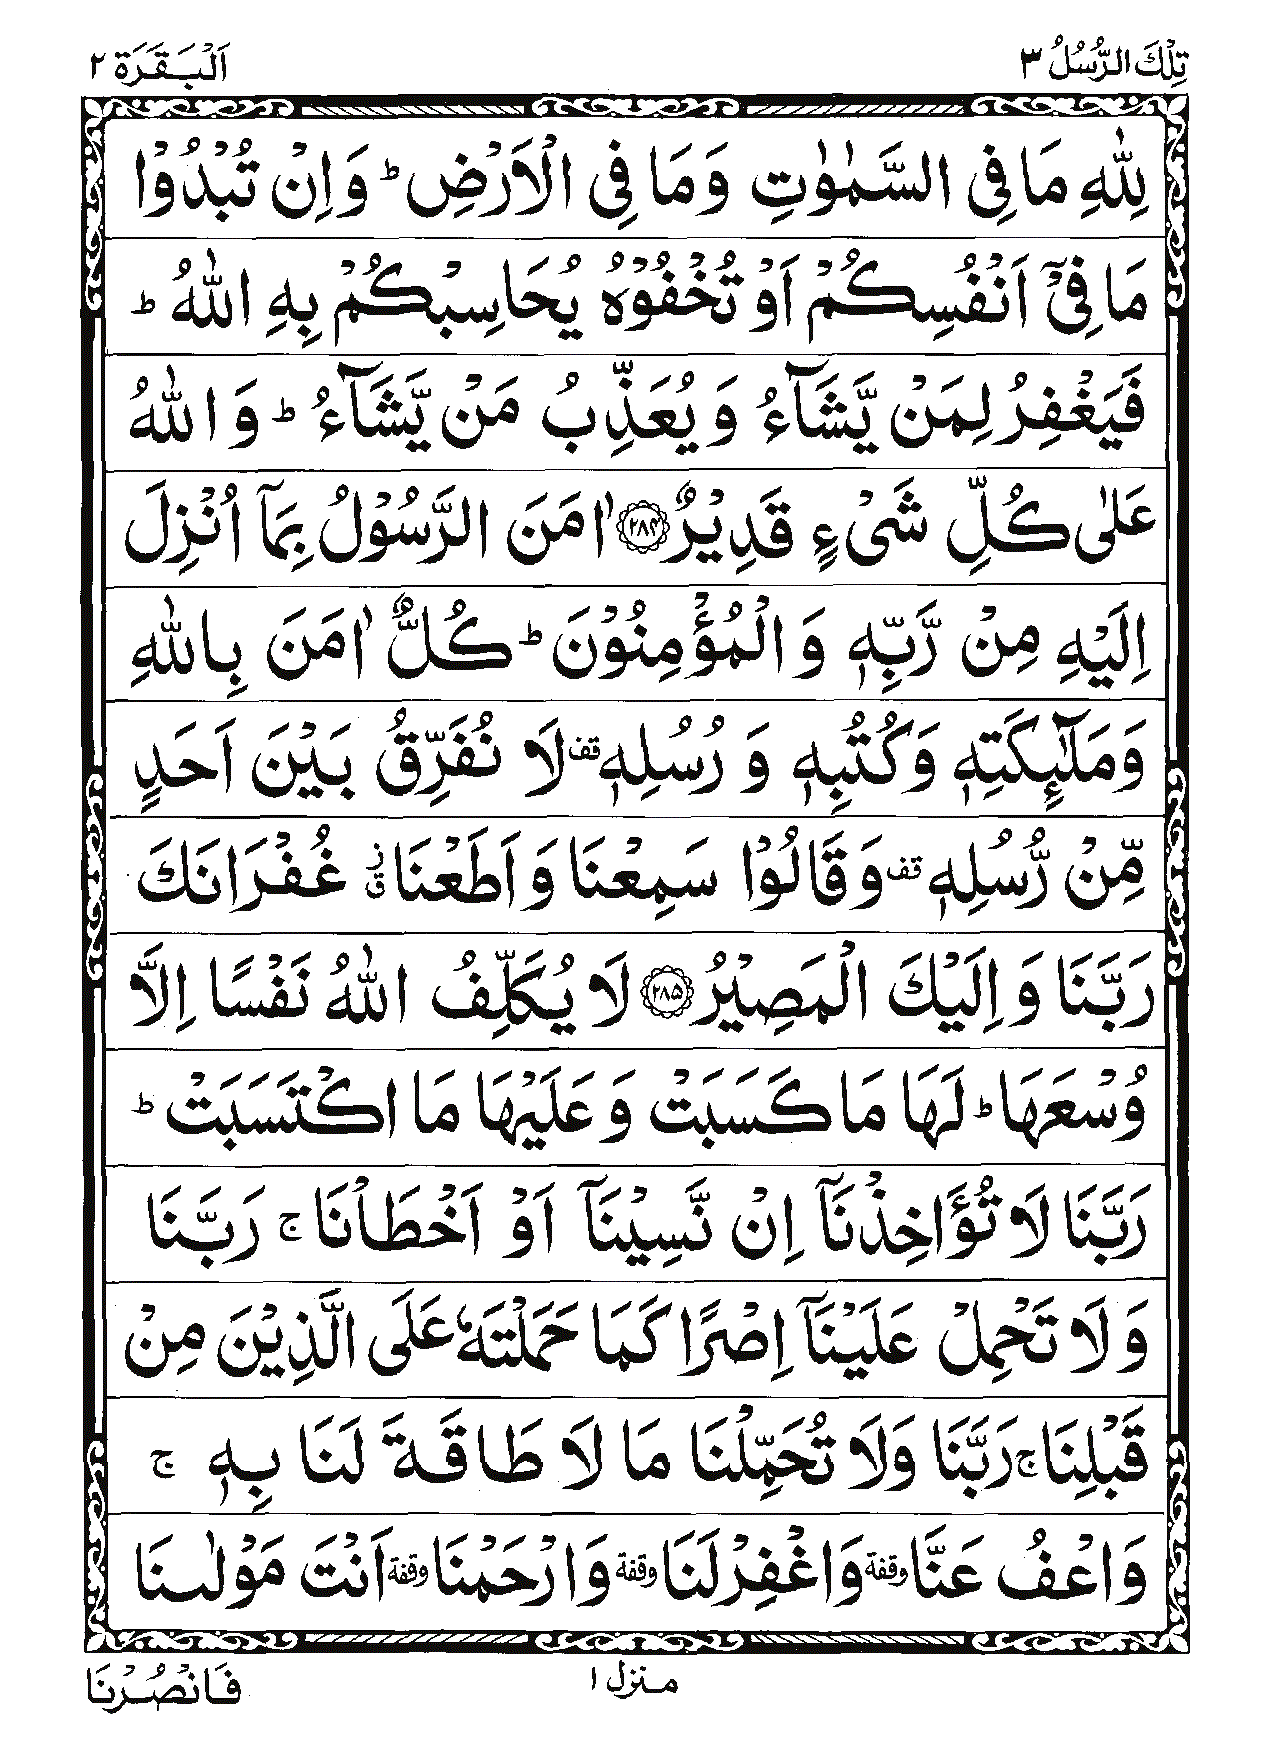 تِلْكَ الرُّسُلُ ٣
اَلْبَقَرَة ٢
لِلّٰهِ مَا فِی السَّمٰوٰتِ وَ مَا فِی الْاَرْضِ ؕ وَ اِنْ تُبْدُوْا
مَا فِیْۤ اَنْفُسِكُمْ اَوْ تُخْفُوْهُ یُحَاسِبْكُمْ بِهِ اللّٰهُ ؕ
فَیَغْفِرُ لِمَنْ یَّشَآءُ وَ یُعَذِّبُ مَنْ یَّشَآءُ ؕ وَ اللّٰهُ
عَلٰی كُلِّ شَیْءٍ قَدِیْرٌ ﴿۲۸۴﴾ اٰمَنَ الرَّسُوْلُ بِمَاۤ اُنْزِلَ
اِلَیْهِ مِنْ رَّبِّهٖ وَ الْمُؤْمِنُوْنَ ؕ كُلٌّ اٰمَنَ بِاللّٰهِ
وَمَلٰٓئِكَتِهٖ وَكُتُبِهٖ وَ رُسُلِهٖ قف لَا نُفَرِّقُ بَیْنَ اَحَدٍ
مِّنْ رُّسُلِهٖ قف وَ قَالُوْا سَمِعْنَا وَ اَطَعْنَا ق ز غُفْرَانَكَ
رَبَّنَا وَ اِلَیْكَ الْمَصِیْرُ ﴿۲۸۵﴾ لَا یُكَلِّفُ اللّٰهُ نَفْسًا اِلَّا
وُسْعَهَا ؕ لَهَا مَا كَسَبَتْ وَ عَلَیْهَا مَا اكْتَسَبَتْ ؕ
رَبَّنَا لَا تُؤَاخِذْنَاۤ اِنْ نَّسِیْنَاۤ اَوْ اَخْطَاْنَا ۚ رَبَّنَا
وَ لَا تَحْمِلْ عَلَیْنَاۤ اِصْرًا كَمَا حَمَلْتَهٗ عَلَی الَّذِیْنَ مِنْ
قَبْلِنَا ۚ رَبَّنَا وَلَا تُحَمِّلْنَا مَا لَا طَاقَةَ لَنَا بِهٖ ۚ
وَاعْفُ عَنَّا وقفة وَاغْفِرْلَنَا وقفة وَارْحَمْنَا وقفة اَنْتَ مَوْلٰىنَا
منزل ١
فَانْصُرْنَا